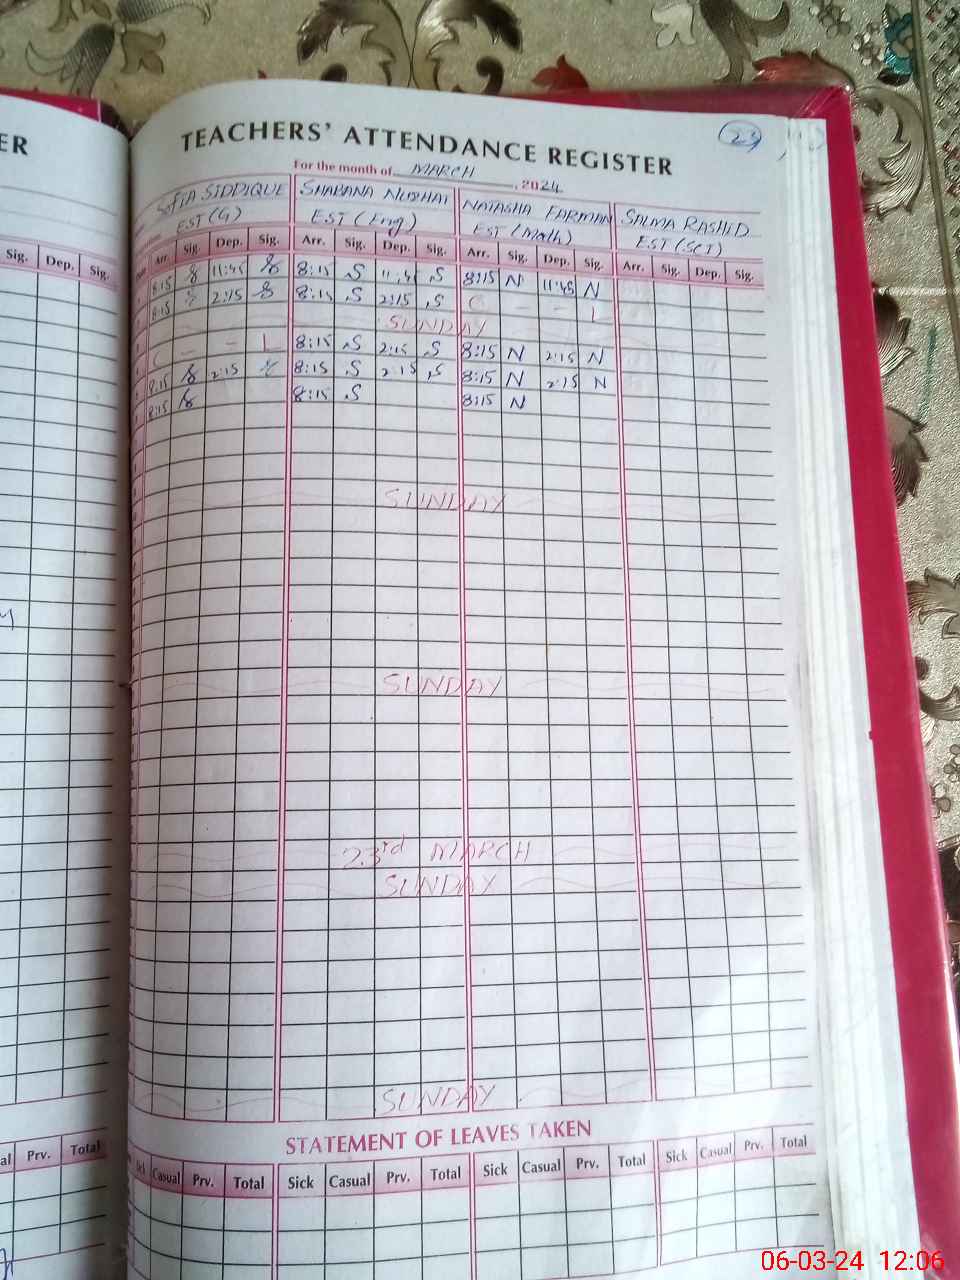 ER
23
TEACHERS' ATTENDANCE REGISTER
For the month of MARCH, 2024
SOFIA SIDDIQUE SHABANA NUZHAT NATASHA FARMAN SALMA RASHID
EST (G) EST (Eng) EST (Math) EST (SCI)
Sig. Dep. Sig. Arr. Sig. Dep. Sig. Arr. Sig. Dep. Sig. Arr. Sig. Dep. Sig. Arr. Sig. Dep. Sig.
8:15 11:45 8:15 S 11:45 S 8:15 N 11:45 N
8:15 2:15 8:15 S 2:15 S C - - L
SUNDAY
C - - L 8:15 S 2:15 S 8:15 N 2:15 N
8:15 2:15 8:15 S 2:15 S 8:15 N 2:15 N
8:15 8:15 S 8:15 N
SUNDAY
SUNDAY
23rd MARCH
SUNDAY
SUNDAY
STATEMENT OF LEAVES TAKEN
Prv. Total Sick Casual Prv. Total Sick Casual Prv. Total Sick Casual Prv. Total Sick Casual Prv. Total
06-03-24 12:06